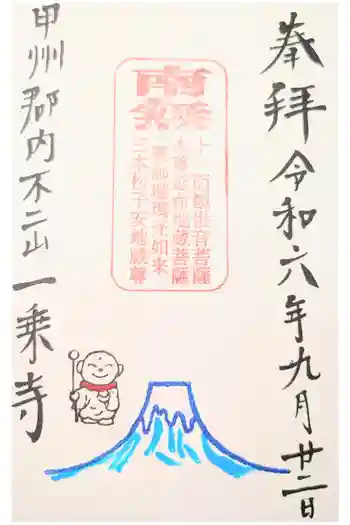 奉拝 令和六年九月廿二日
本尊延命地蔵菩薩
三本杉子安地蔵尊
甲州郡内不二山一乗寺